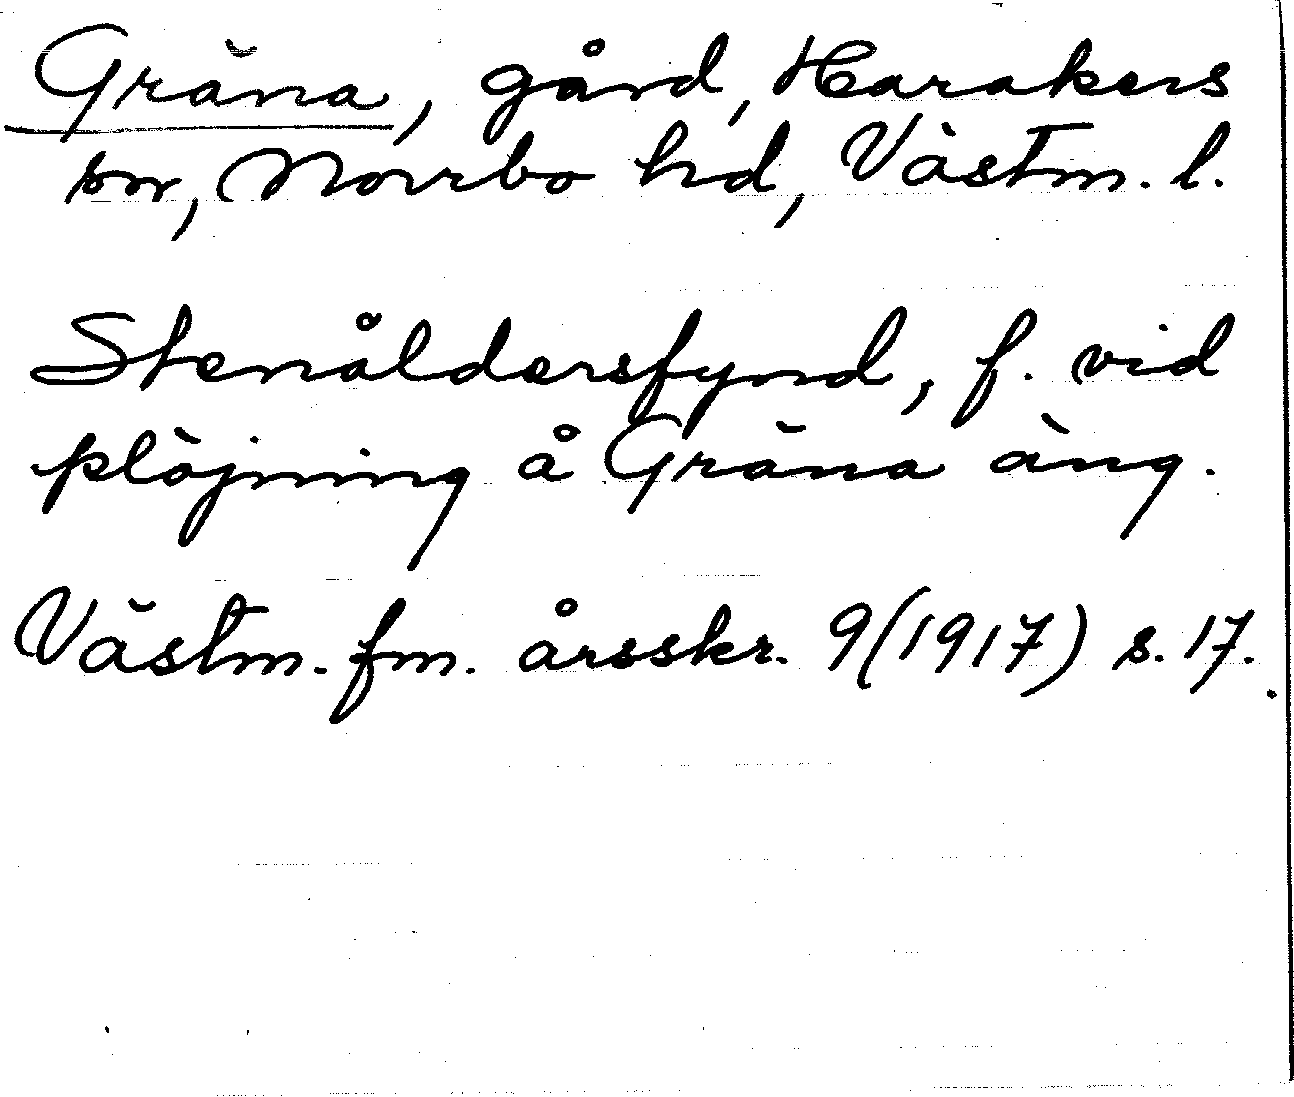 Gräna, gård, Harakers
sn, Norrbo hd, Västm. l.
Stenåldersfynd, f. vid
plöjning å Gräna äng.
Västm. fm. årsskr. 9(1917) s. 17.